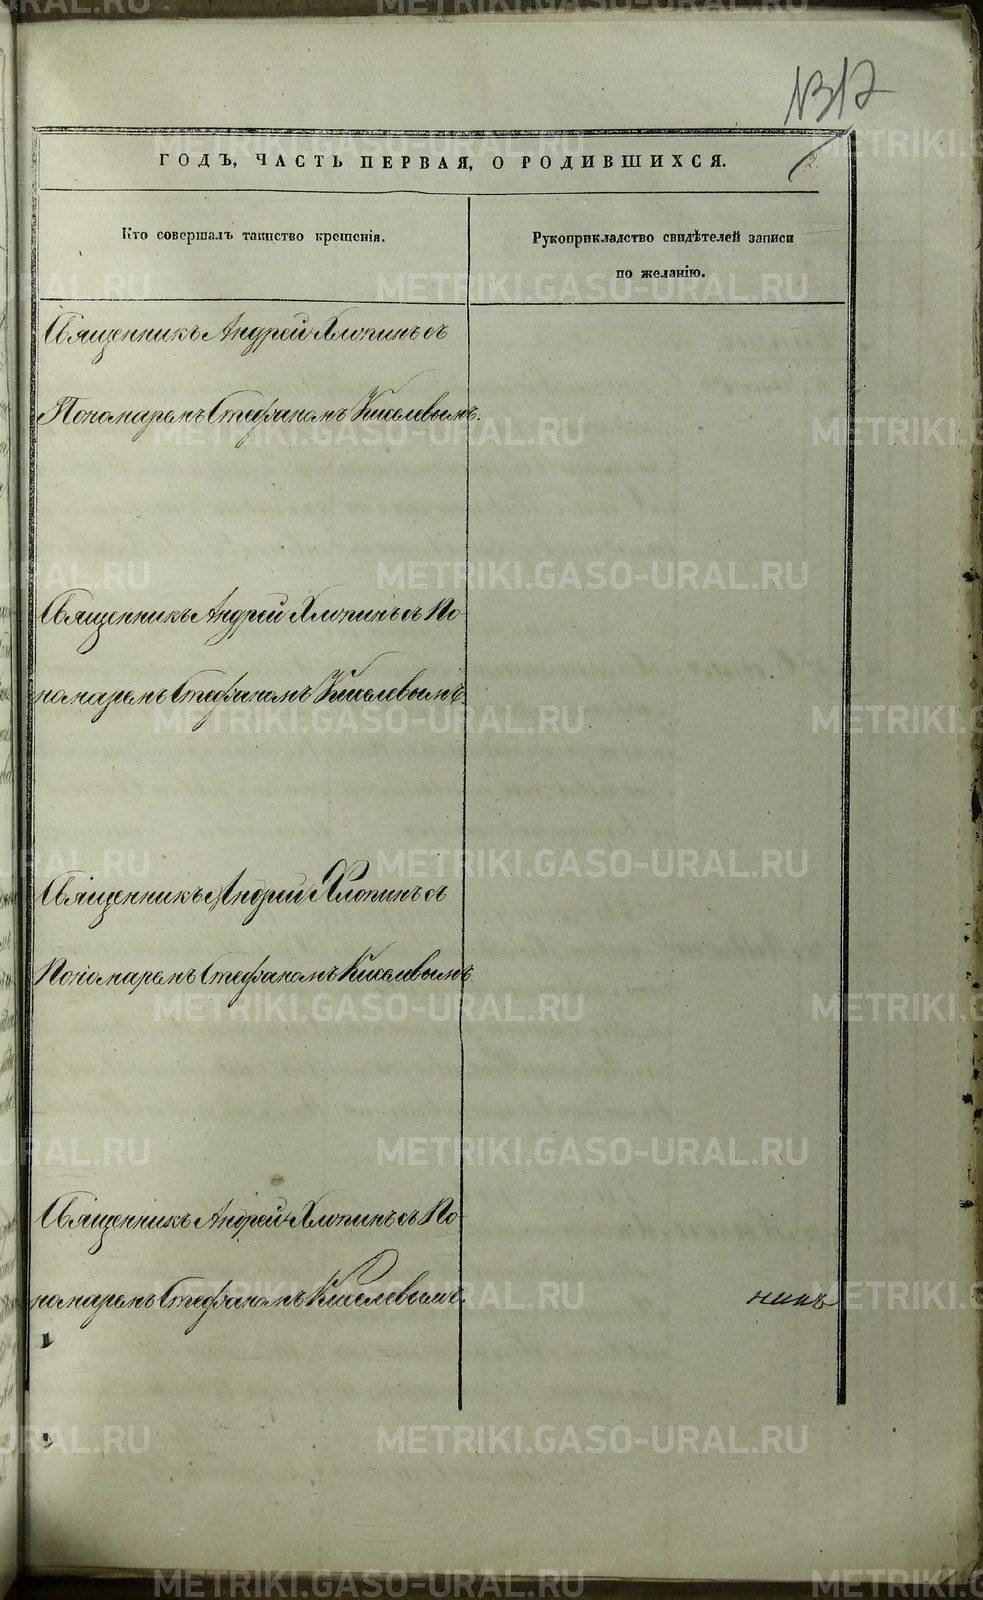 1317
ГОДЪ, ЧАСТЬ ПЕРВАЯ, О РОДИВШИХСЯ.
2.
Кто совершалъ таинство крещенія.
Рукоприкладство свидѣтелей записи
по желанію.
Священникъ Андрей Хлопинъ съ
Пономаремъ Стефаномъ Киселевымъ.
Священникъ Андрей Хлопинъ съ По-
номаремъ Стефаномъ Киселевымъ.
Священникъ Андрей Хлопинъ съ
Пономаремъ Стефаномъ Киселевымъ
Священникъ Андрей Хлопинъ съ По-
номаремъ Стефаномъ Киселевымъ.
METRIKI.GASO-URAL.RU